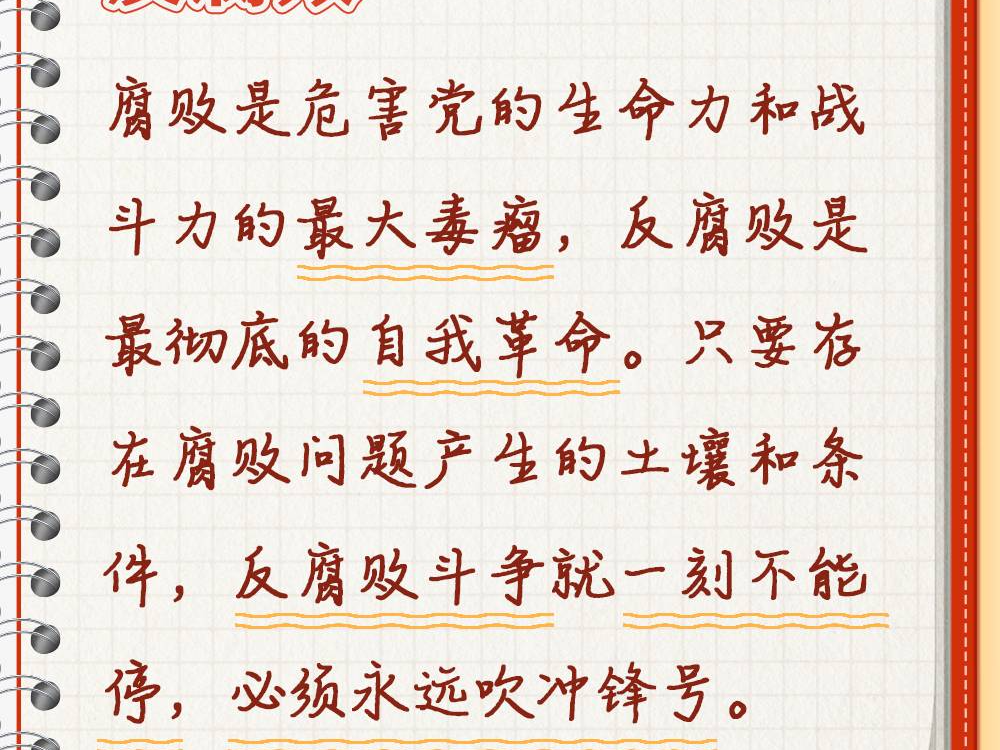 腐败是危害党的生命力和战
斗力的最大毒瘤，反腐败是
最彻底的自我革命。只要存
在腐败问题产生的土壤和条
件，反腐败斗争就一刻不能
停，必须永远吹冲锋号。